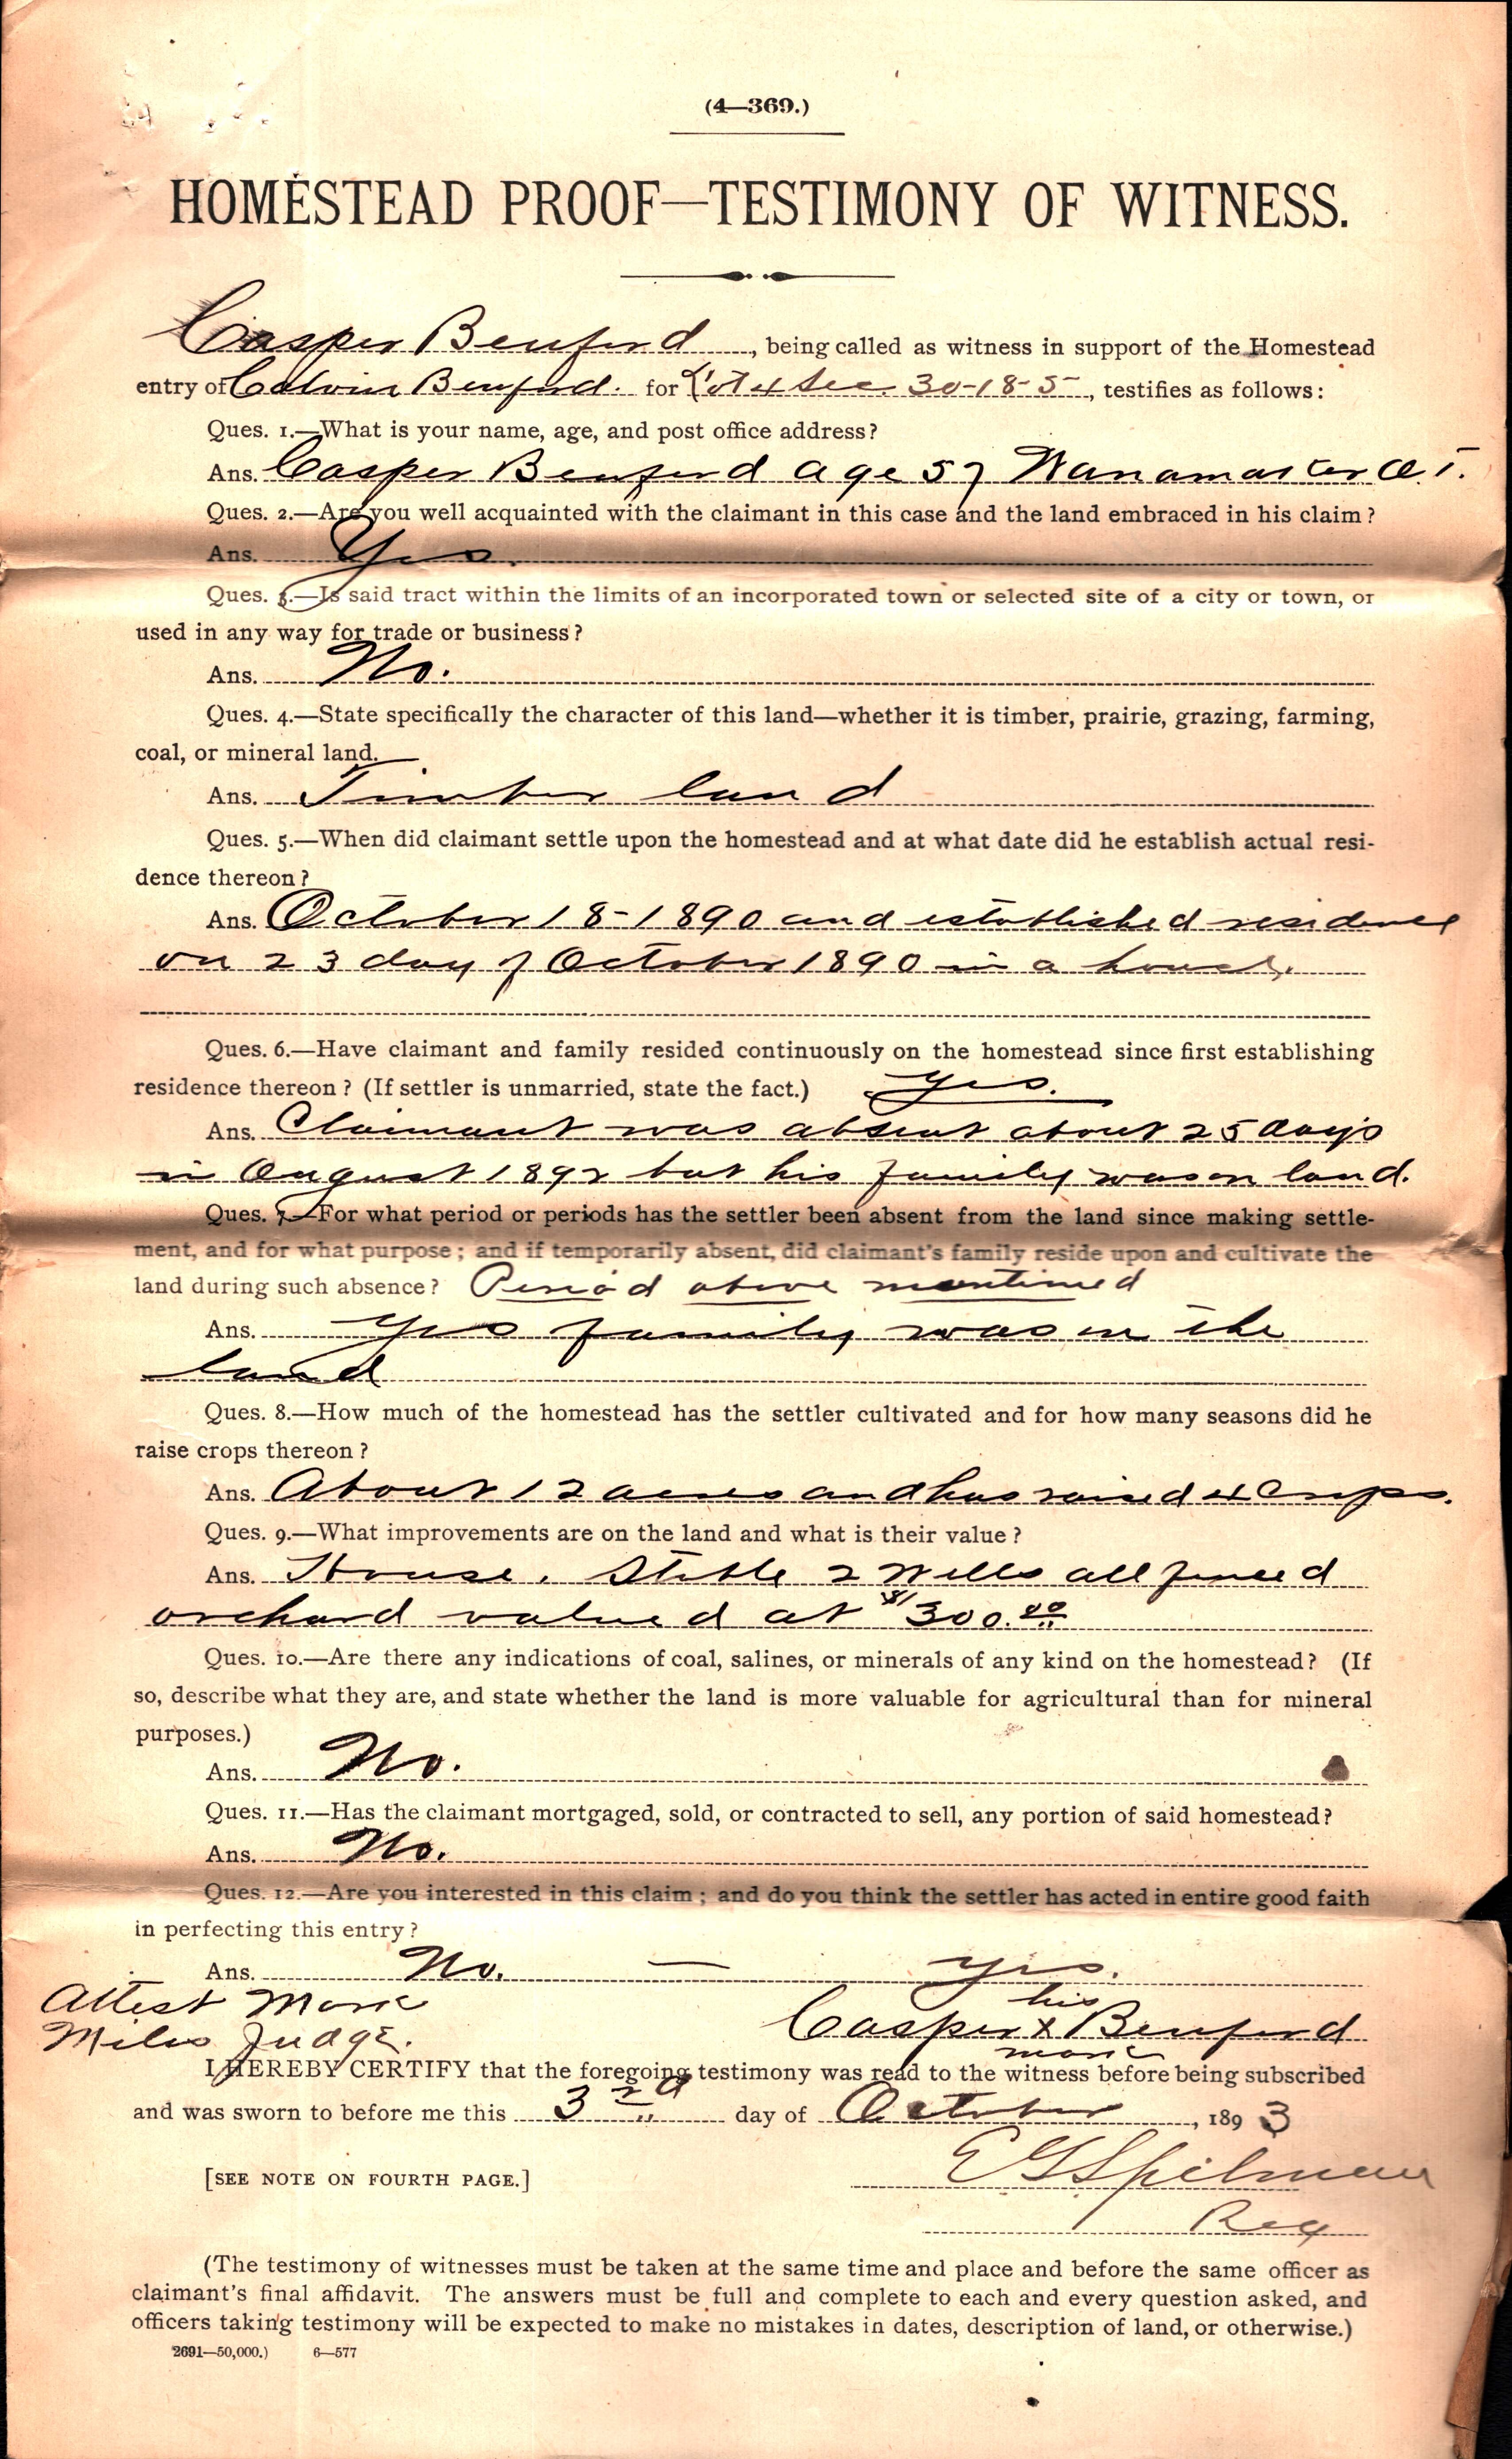 (4—369.)
HOMESTEAD PROOF—TESTIMONY OF WITNESS.
Casper Benford, being called as witness in support of the Homestead
entry of Calvin Benford. for Lot 4 Sec. 30-18-5-, testifies as follows:
Ques. 1.—What is your name, age, and post office address?
Ans. Casper Benford age 57 Wanamaker O.T.
Ques. 2.—Are you well acquainted with the claimant in this case and the land embraced in his claim?
Ans. Yes.
Ques. 3.—Is said tract within the limits of an incorporated town or selected site of a city or town, or
used in any way for trade or business?
Ans. No.
Ques. 4.—State specifically the character of this land—whether it is timber, prairie, grazing, farming,
coal, or mineral land.
Ans. Timber land
Ques. 5.—When did claimant settle upon the homestead and at what date did he establish actual resi-
dence thereon?
Ans. October 18-1890 and established residence
on 23 day of October 1890 in a house.
Ques. 6.—Have claimant and family resided continuously on the homestead since first establishing
residence thereon? (If settler is unmarried, state the fact.) Yes.
Ans. Claimant was absent about 25 days
in August 1892 but his family was on land.
Ques. 7.—For what period or periods has the settler been absent from the land since making settle-
ment, and for what purpose; and if temporarily absent, did claimant's family reside upon and cultivate the
land during such absence? Period above mentioned
Ans. Yes family was on the
land
Ques. 8.—How much of the homestead has the settler cultivated and for how many seasons did he
raise crops thereon?
Ans. About 12 acres and has raised 4 crops.
Ques. 9.—What improvements are on the land and what is their value?
Ans. House, Stable 2 Wells all fenced
orchard valued at $300.00
Ques. 10.—Are there any indications of coal, salines, or minerals of any kind on the homestead? (If
so, describe what they are, and state whether the land is more valuable for agricultural than for mineral
purposes.)
Ans. No.
Ques. 11.—Has the claimant mortgaged, sold, or contracted to sell, any portion of said homestead?
Ans. No.
Ques. 12.—Are you interested in this claim; and do you think the settler has acted in entire good faith
in perfecting this entry?
Ans. No. — Yes.
Attest Mark
Miles Judge.
his
Casper x Benford
mark
I HEREBY CERTIFY that the foregoing testimony was read to the witness before being subscribed
and was sworn to before me this 3rd day of October, 1893
E G Spilman
[SEE NOTE ON FOURTH PAGE.]
Reg
(The testimony of witnesses must be taken at the same time and place and before the same officer as
claimant's final affidavit. The answers must be full and complete to each and every question asked, and
officers taking testimony will be expected to make no mistakes in dates, description of land, or otherwise.)
2691—50,000.) 6—577